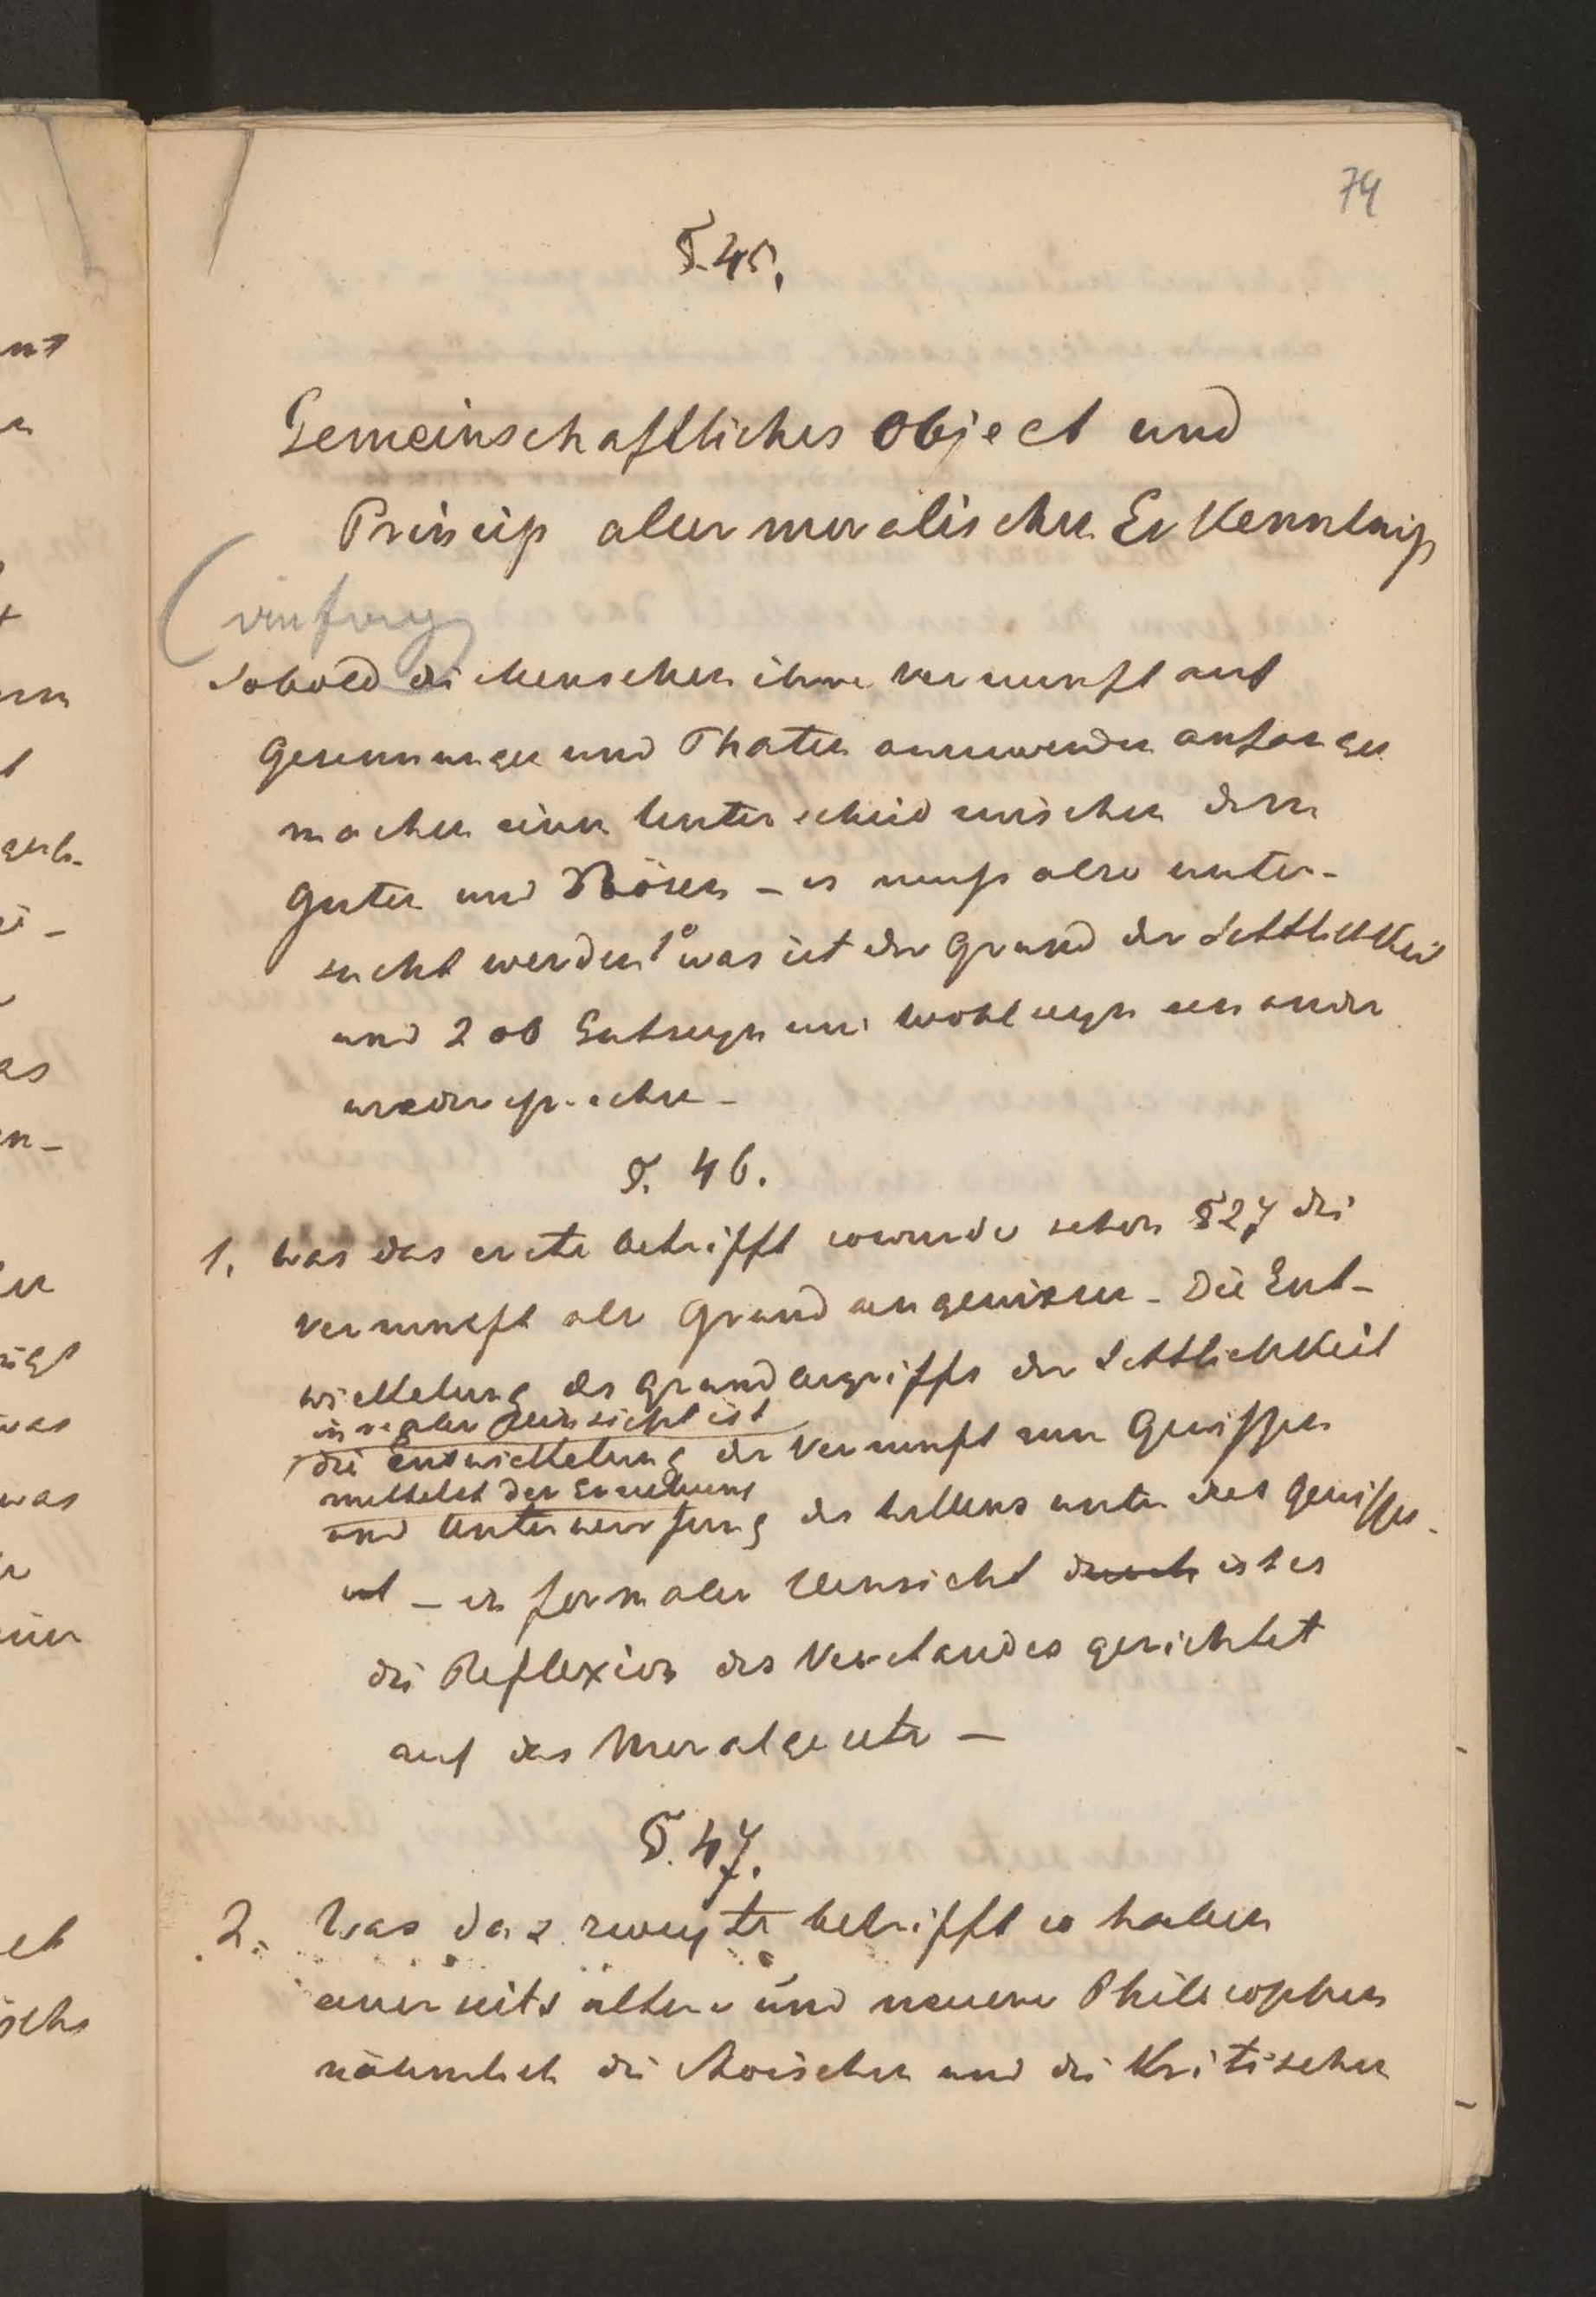 74
§. 45.
Gemeinschaftliches Object und
Princip aller moralischen Erkenntniß
Sobald die Menschen ihre Vernunft auf
Gesinnungen und Thaten anzuwenden anfangen
machen einen Unterscheid zwischen dem
Guten und Bösen – es muß also unter-
sucht werden 1° was ist der Grund der Sittlichkeit
und 2 ob Gutseyn und Wohlseyn einander
widersprechen –
§. 46.
1. Was das erste betrifft so wurde schon §27 die
Vernunft als Grund angewiesen – Die Ent-
wickelung des Grundbegriffs der Sittlichkeit
in realer Hinsicht ist
die Entwickelung der Vernunft zum Gewissen
mittelst der Erziehung
und Unterwerfung des Willens unter das Gewissen.
ist – in formaler Hinsicht durch ist es
die Reflexion des Verstandes gerichtet
auf das Moralgesetz –
§. 47.
2. Was das zweyte betrifft so haben
einerseits ältere und neuere Philosophen
nähmlich die Stoischen und die Kritischen